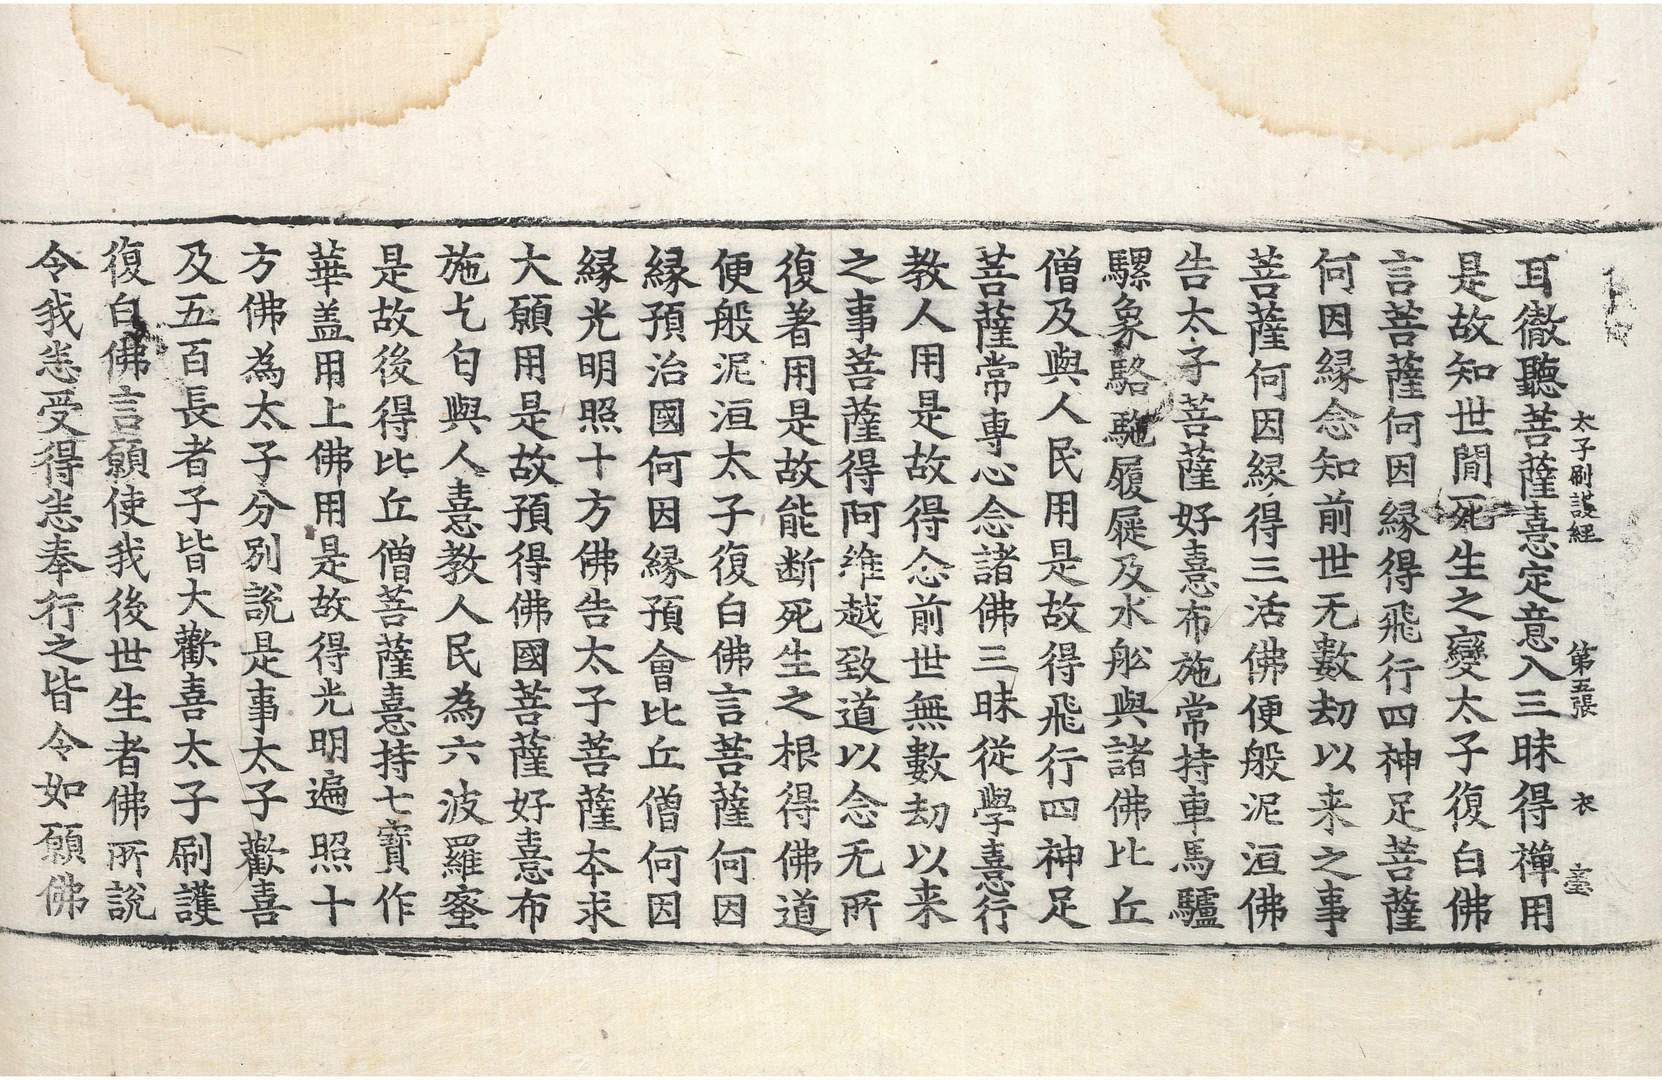 太子刷護經　第五張　衣
耳徹聽菩薩憙定意入三昧得禪用
是故知世閒死生之變太子復白佛
言菩薩何因緣得飛行四神足菩薩
何因緣念知前世无數劫以来之事
菩薩何因緣得三活佛便般泥洹佛
告太子菩薩好憙布施常持車馬驢
騾象駱駞履屣及水舩與諸佛比丘
僧及與人民用是故得飛行四神足
菩薩常專心念諸佛三昧從學憙行
教人用是故得念前世無數劫以来
之事菩薩得阿維越致道以念无所
復著用是故能断死生之根得佛道
便般泥洹太子復白佛言菩薩何因
緣預治國何因緣預會比丘僧何因
緣光明照十方佛告太子菩薩夲求
大願用是故預得佛國菩薩好憙布
施乞匄與人憙教人民為六波羅蜜
是故後得比丘僧菩薩憙持七寶作
華盖用上佛用是故得光明遍照十
方佛為太子分別說是事太子歡喜
及五百長者子皆大歡喜太子刷護
復白佛言願使我後世生者佛所說
令我恙受得恙奉行之皆令如願佛